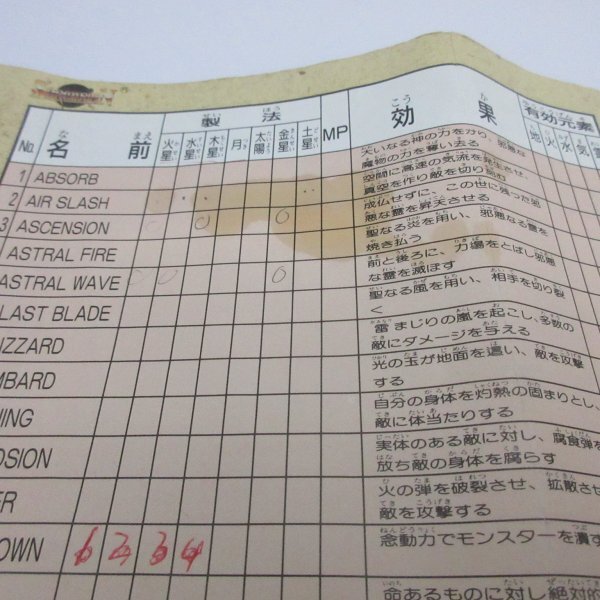 製法
効果
有効元素
No.
名前
火星
水星
木星
月
太陽
金星
土星
MP
地
火
水
気
1 ABSORB
大いなる神の力を介り、邪悪な
魔物の力を奪い去る
2 AIR SLASH
空間に高速の気流を発生させ、
真空を作り敵を切り刻む
3 ASCENSION
成仏せずに、この世に残った邪
悪な霊を昇天させる
ASTRAL FIRE
聖なる炎を用い、邪悪なる霊を
焼き払う
ASTRAL WAVE
前と後ろに、力場をとばし邪悪
な霊を滅ぼす
LAST BLADE
聖なる風を用い、相手を切り裂
く
IZZARD
雷まじりの嵐を起こし、多数の
敵にダメージを与える
MBARD
光の玉が地面を這い、敵を攻撃
する
NING
自分の身体を灼熱の固まりとし、
敵に体当たりする
OSION
実体のある敵に対し、腐食弾を
放ち敵の身体を腐らす
ER
火の弾を破裂させ、拡散させ
敵を攻撃する
OWN
6 2 3 4
念動力でモンスターを潰す
命あるものに対し絶対的